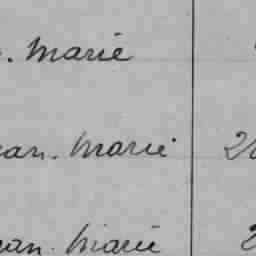 . Marie
ean-Marie 2
ean-Marie 2